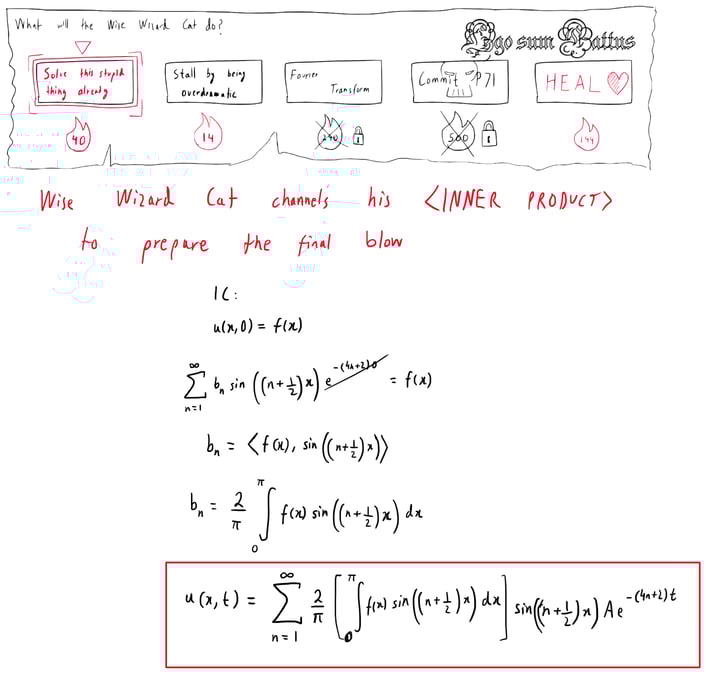 What will the Wise Wizard Cat do?
Ego sum Cattus
Solve this stupid thing already
Stall by being overdramatic
Fourier Transform
Commit P71
HEAL ♡
40
14
240
500
144
Wise Wizard Cat channels his <INNER PRODUCT>
to prepare the final blow
IC:
u(x,0) = f(x)
∞ Σ n=1 b_n sin((n+1/2)x) e^{-(4n+2)0} = f(x)
b_n = ⟨f(x), sin((n+1/2)x)⟩
b_n = 2/π ∫_0^π f(x) sin((n+1/2)x) dx
u(x,t) = ∞ Σ n=1 2/π [∫_0^π f(x) sin((n+1/2)x) dx] sin((n+1/2)x) A e^{-(4n+2)t}